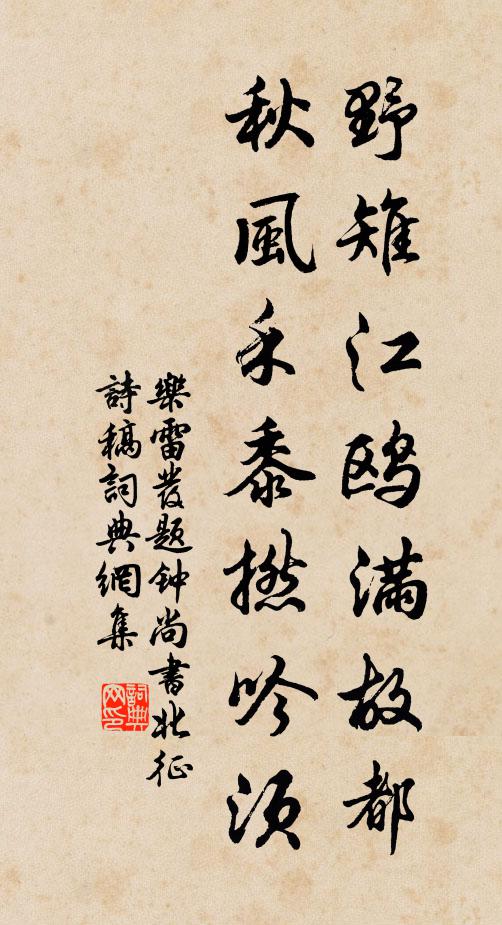 野雉江鸥满故都
秋風禾黍撚吟须
樂雷發题钟尚書北征
詩稿詞典網集
詞典网印